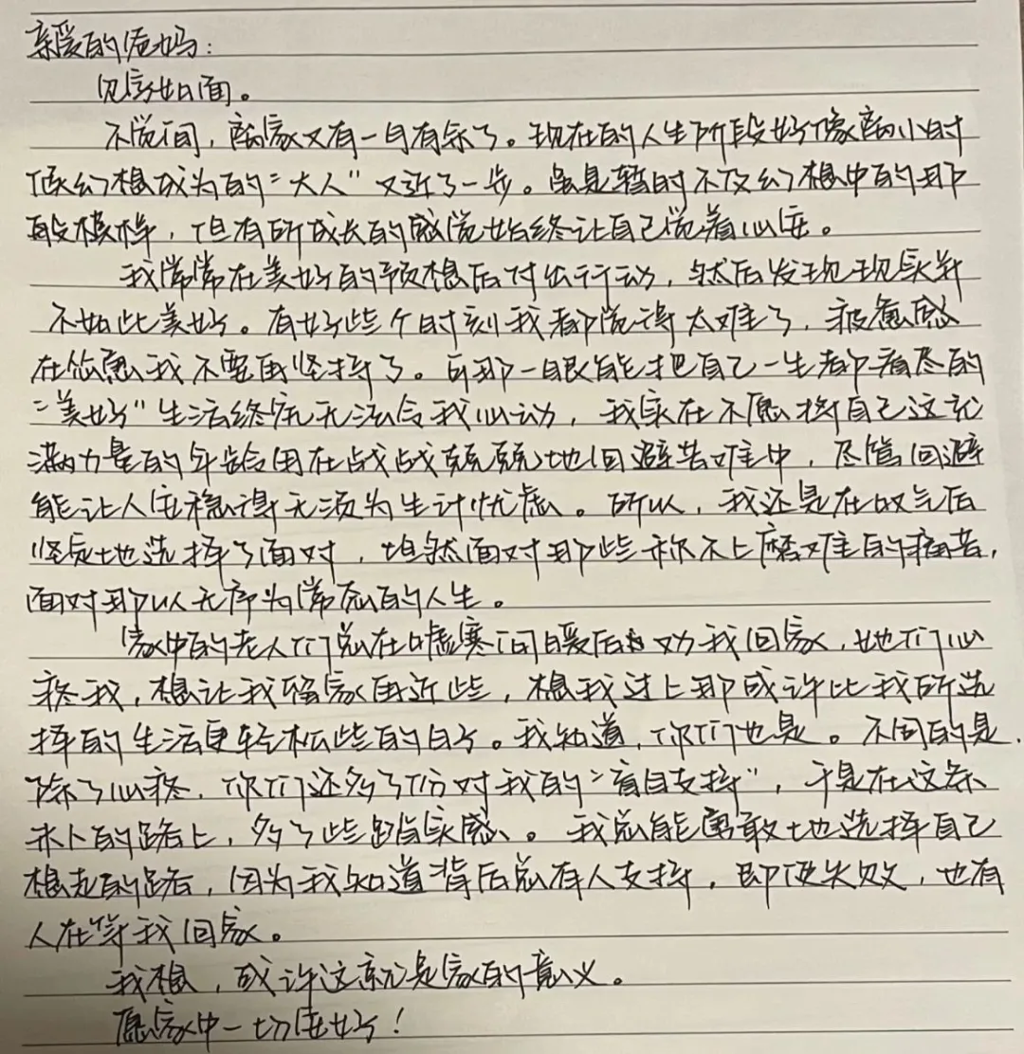 亲爱的爸妈：
见字如面。
不觉间，离家又有一月有余了。现在的人生阶段好像离小时
候幻想成为的“大人”又近了一步。虽是暂时不及幻想中的那
般模样，但有所成长的感觉始终让自己觉着心安。
我常常在美好的预想后付出行动，然后发现现实并
不如此美好。有好些个时刻我都觉得太难了，疲惫感
在怂恿我不要再坚持了。可那一眼能把自己一生都看尽的
“美好”生活终究无法令我心动，我实在不愿将自己这充
满力量的年龄用在战战兢兢地回避苦难中，尽管回避
能让人安稳得无须为生计忧虑。所以，我还是在叹气后
坚定地选择了面对，坦然面对那些称不上磨难的痛苦，
面对那以无序为常态的人生。
家中的老人们总在嘘寒问暖后劝我回家，她们心
疼我，想让我离家再近些，想我过上那或许比我所选
择的生活更轻松些的日子。我知道，你们也是。不同的是，
除了心疼，你们还多了份对我的“盲目支持”，于是在这条
忐忑的路上，多了些踏实感。我总能勇敢地选择自己
想走的路，因为我知道背后总有人支持，即便失败，也有
人在等我回家。
我想，或许这就是家的意义。
愿家中一切安好！